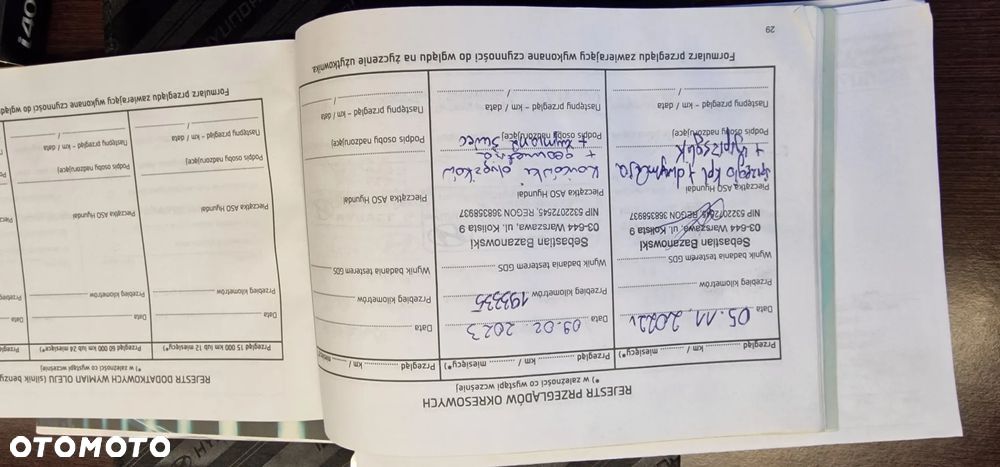 REJESTR PRZEGLĄDÓW OKRESOWYCH
*) w zależności co wystąpi wcześniej
Przegląd ............ km / ............ miesięcy*)
Data 05.11.2022r
Przebieg kilometrów
Wynik badania testerem GDS
Sebastian Bazanowski
03-644 Warszawa, ul. Kolista 9
NIP 5322072545, REGON 368358937
Pieczątka ASO Hyundai
sprzęgło kpl + dwumasa
Podpis osoby nadzorującej
Następny przegląd - km / data
/
Przegląd ............ km / ............ miesięcy*)
Data 09.02.2023
Przebieg kilometrów 193335
Wynik badania testerem GDS
Sebastian Bazanowski
03-644 Warszawa, ul. Kolista 9
NIP 5322072545, REGON 368358937
Pieczątka ASO Hyundai
Końcówki drążków
+ geometria
Podpis osoby nadzorującej
+ wymiana świec
Następny przegląd - km / data
/
Przegląd ............ km / ............ miesięcy
Data
Przebieg kilometrów
Wynik badania testerem GDS
Pieczątka ASO Hyundai
Podpis osoby nadzorującej
Następny przegląd - km / data
/
Formularz przeglądu zawierający wykonane czynności do wglądu na życzenie użytkownika.
29
REJESTR DODATKOWYCH WYMIAN OLEJU (silnik benzy
*) w zależności co wystąpi wcześniej
Przegląd 15 000 km lub 12 miesięcy*)
Data
Przebieg kilometrów
Pieczątka ASO Hyundai
Podpis osoby nadzorującej
Następny przegląd - km / data
/
Przegląd 60 000 km lub 24 miesiące*)
Data
Przebieg kilometrów
Pieczątka ASO Hyundai
Podpis osoby nadzorującej
Następny przegląd - km / data
/
Formularz przeglądu zawierający wykonane czynności do wglądu
i40
OTOMOTO